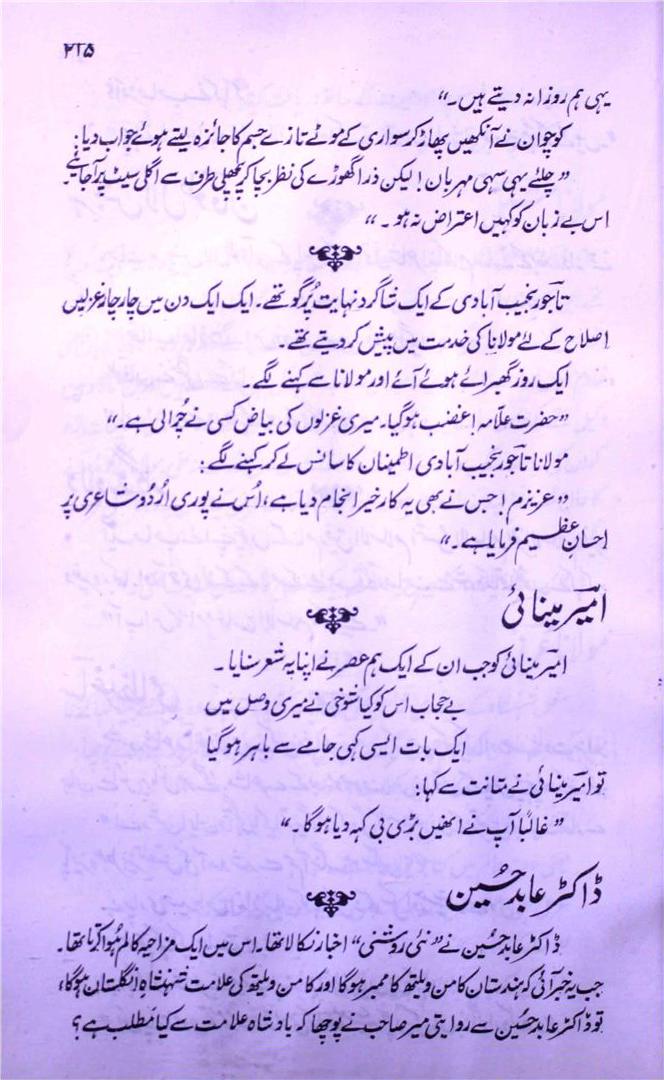 ۲۲۵
یہی ہم روزانہ دیتے ہیں۔"
کوچوان نے آنکھیں پھاڑ کر سواری کے موٹے تازے جسم کا جائزہ لیتے ہوئے جواب دیا:
"چلئے یہی سہی مہربان! لیکن ذرا گھوڑے کی نظر بچا کر پچھلی طرف سے اگلی سیٹ پر آجائیے۔
اس بے زبان کو کہیں اعتراض نہ ہو۔"
تاجور نجیب آبادی کے ایک شاگرد نہایت پُر گو تھے۔ ایک ایک دن میں چار چار غزلیں
اصلاح کے لئے مولانا کی خدمت میں پیش کر دیتے تھے۔
ایک روز گھبرائے ہوئے آئے اور مولانا سے کہنے لگے۔
"حضرت علّامہ! غضب ہوگیا۔ میری غزلوں کی بیاض کسی نے چُرالی ہے۔"
مولانا تاجور نجیب آبادی اطمینان کا سانس لے کر کہنے لگے:
"عزیزم! جس نے بھی یہ کار خیر انجام دیا ہے، اُس نے پوری اُردو شاعری پر
احسانِ عظیم فرمایا ہے۔"
امیرؔ مینائی
امیرؔ مینائی کو جب ان کے ایک ہم عصر نے اپنا یہ شعر سنایا۔
بے حجاب اس کو کیا شوخی نے میری وصل میں
ایک بات ایسی کہی جامے سے باہر ہوگیا
تو امیرؔ مینائی نے متانت سے کہا:
"غالباً آپ نے انھیں بڑی بی کہہ دیا ہوگا۔"
ڈاکٹر عابد حُسین
ڈاکٹر عابد حُسین نے "نئی روشنی" اخبار نکالا تھا۔ اس میں ایک مزاحیہ کالم ہُوا کرتا تھا۔
جب یہ خبر آئی کہ ہندستان کامن ویلتھ کا ممبر ہوگا اور کامن ویلتھ کی علامت شہنشاہِ انگلستان ہوگا،
تو ڈاکٹر عابد حُسین سے روایتی میر صاحب نے پوچھا کہ بادشاہ علامت سے کیا مطلب ہے؟